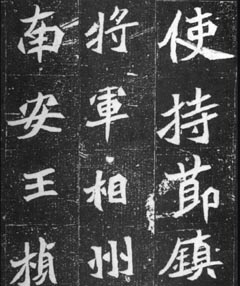 使持節鎮
将軍相州
南安王楨